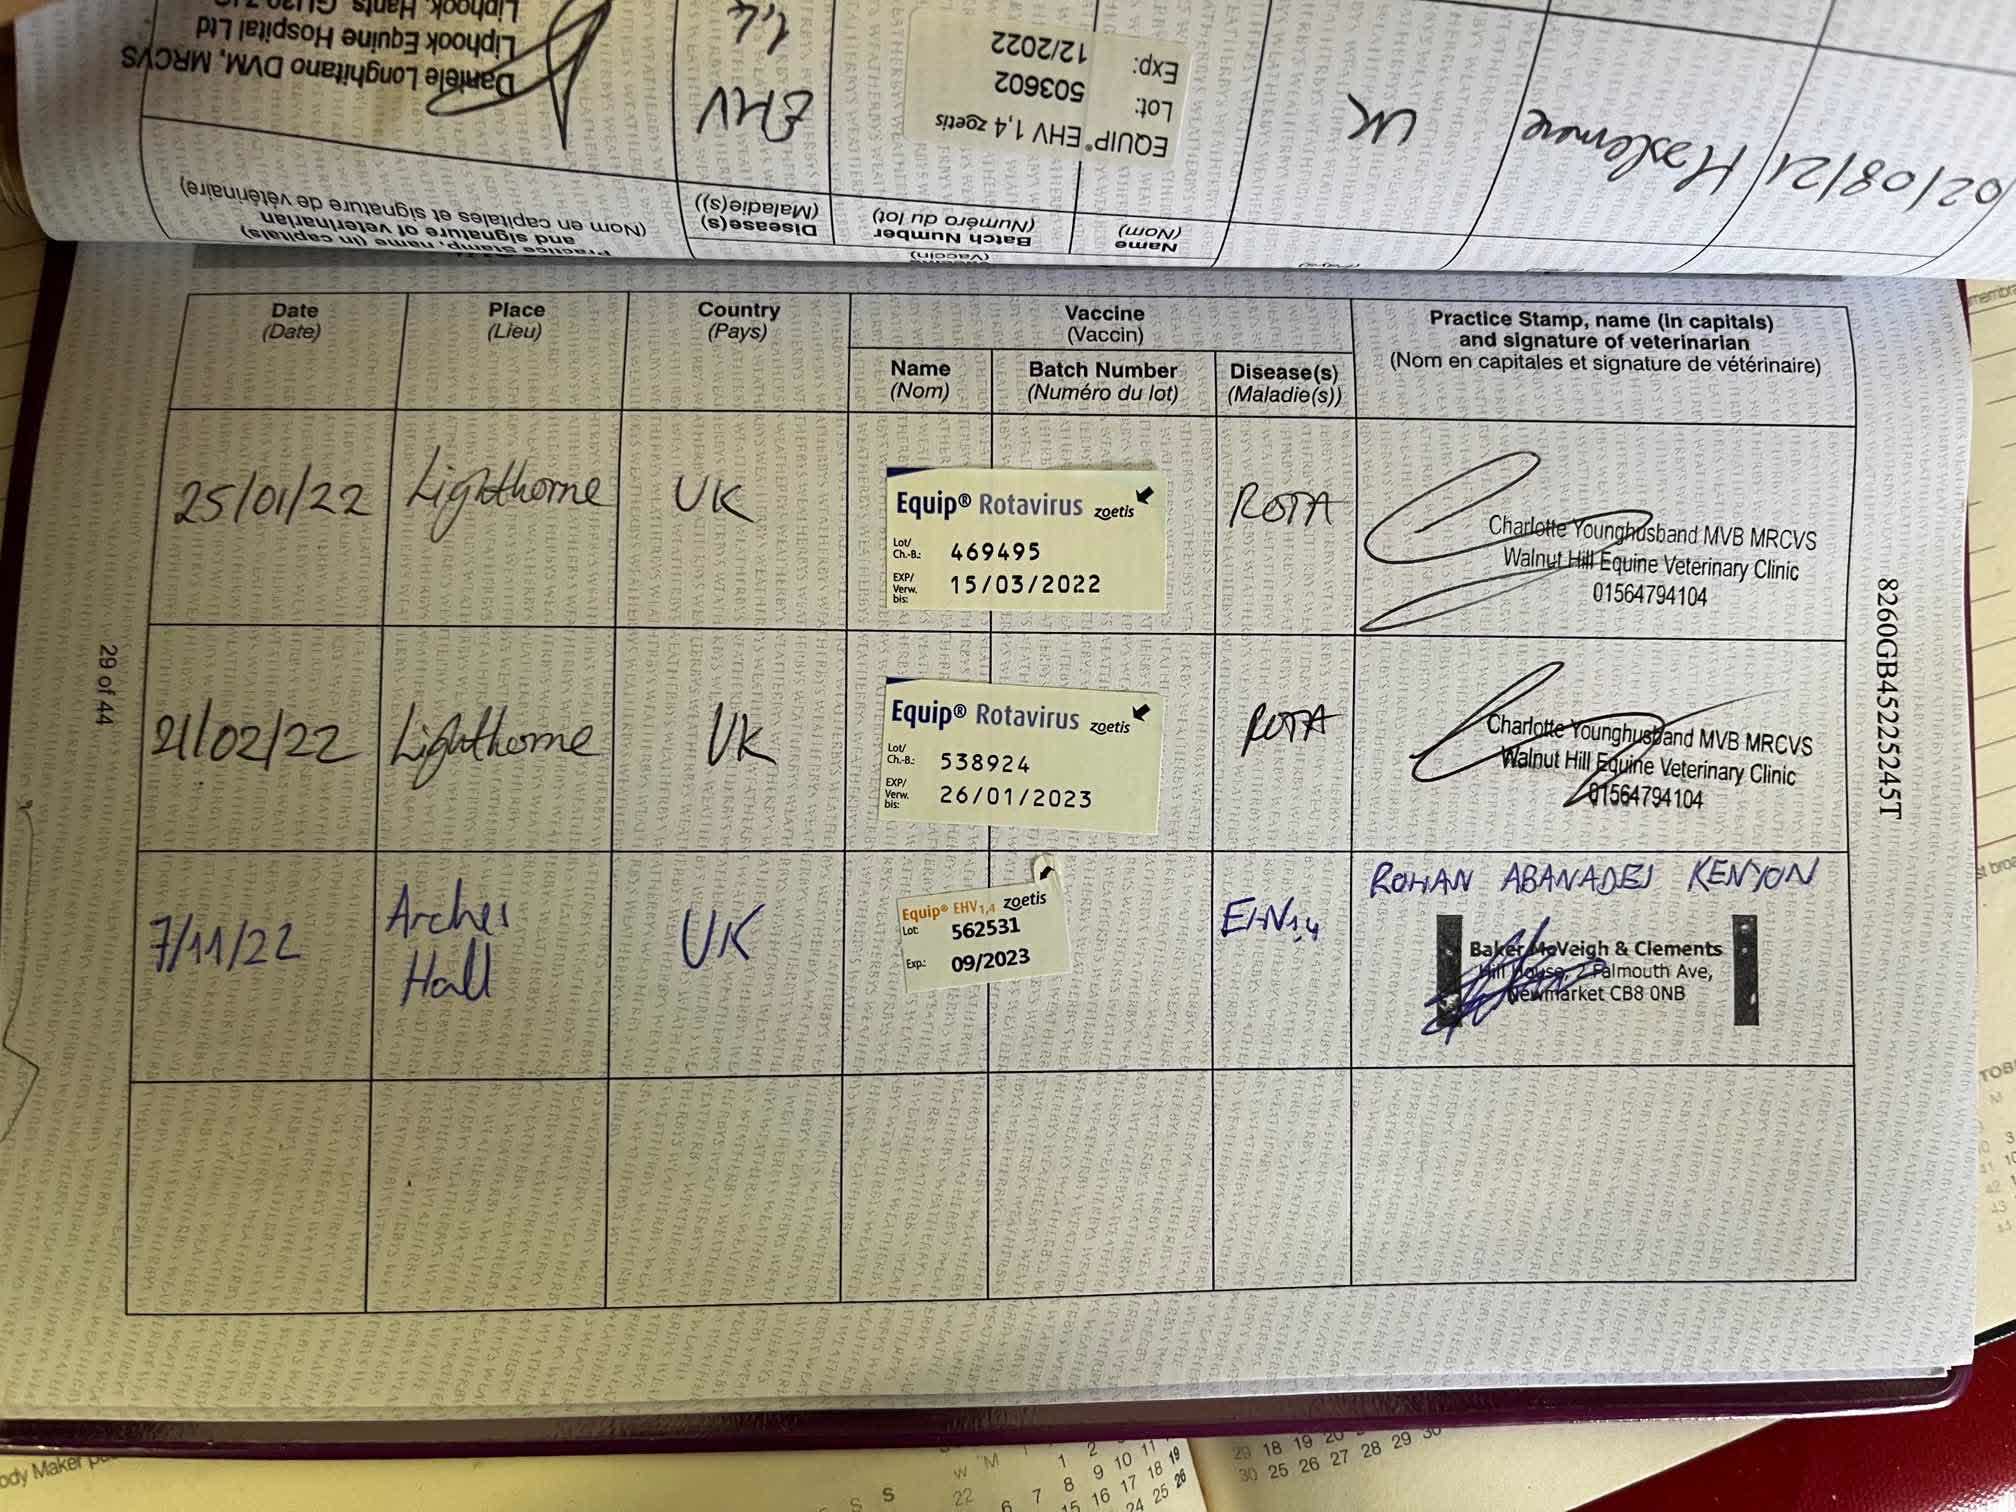 02/08/21
Haslemere
UK
EQUIP® EHV 1,4 zoetis
Lot: 503602
Exp: 12/2022
EHV
1,4
Daniele Longhitano DVM, MRCVS
Liphook Equine Hospital Ltd
Liphook, Hants,
Name
(Nom)
Batch Number
(Numéro du lot)
(Vaccin)
Disease(s)
(Maladie(s))
Practice Stamp, name (in capitals)
and signature of veterinarian
(Nom en capitales et signature de vétérinaire)
Date
(Date)
Place
(Lieu)
Country
(Pays)
Vaccine
(Vaccin)
Name
(Nom)
Batch Number
(Numéro du lot)
Disease(s)
(Maladie(s))
Practice Stamp, name (in capitals)
and signature of veterinarian
(Nom en capitales et signature de vétérinaire)
25/01/22
Lighthorne
UK
Equip® Rotavirus zoetis
Lot/
Ch.-B.: 469495
EXP/
Verw.
bis: 15/03/2022
ROTA
Charlotte Younghusband MVB MRCVS
Walnut Hill Equine Veterinary Clinic
01564794104
21/02/22
Lighthorne
UK
Equip® Rotavirus zoetis
Lot/
Ch.-B.: 538924
EXP/
Verw.
bis: 26/01/2023
ROTA
Charlotte Younghusband MVB MRCVS
Walnut Hill Equine Veterinary Clinic
01564794104
7/11/22
Arches
Hall
UK
Equip® EHV1,4 zoetis
Lot: 562531
Exp.: 09/2023
EHV1,4
ROHAN ABANADES KENYON
Baker McVeigh & Clements
Hill House, 2 Falmouth Ave,
Newmarket CB8 0NB
29 of 44
8260GB45225245T